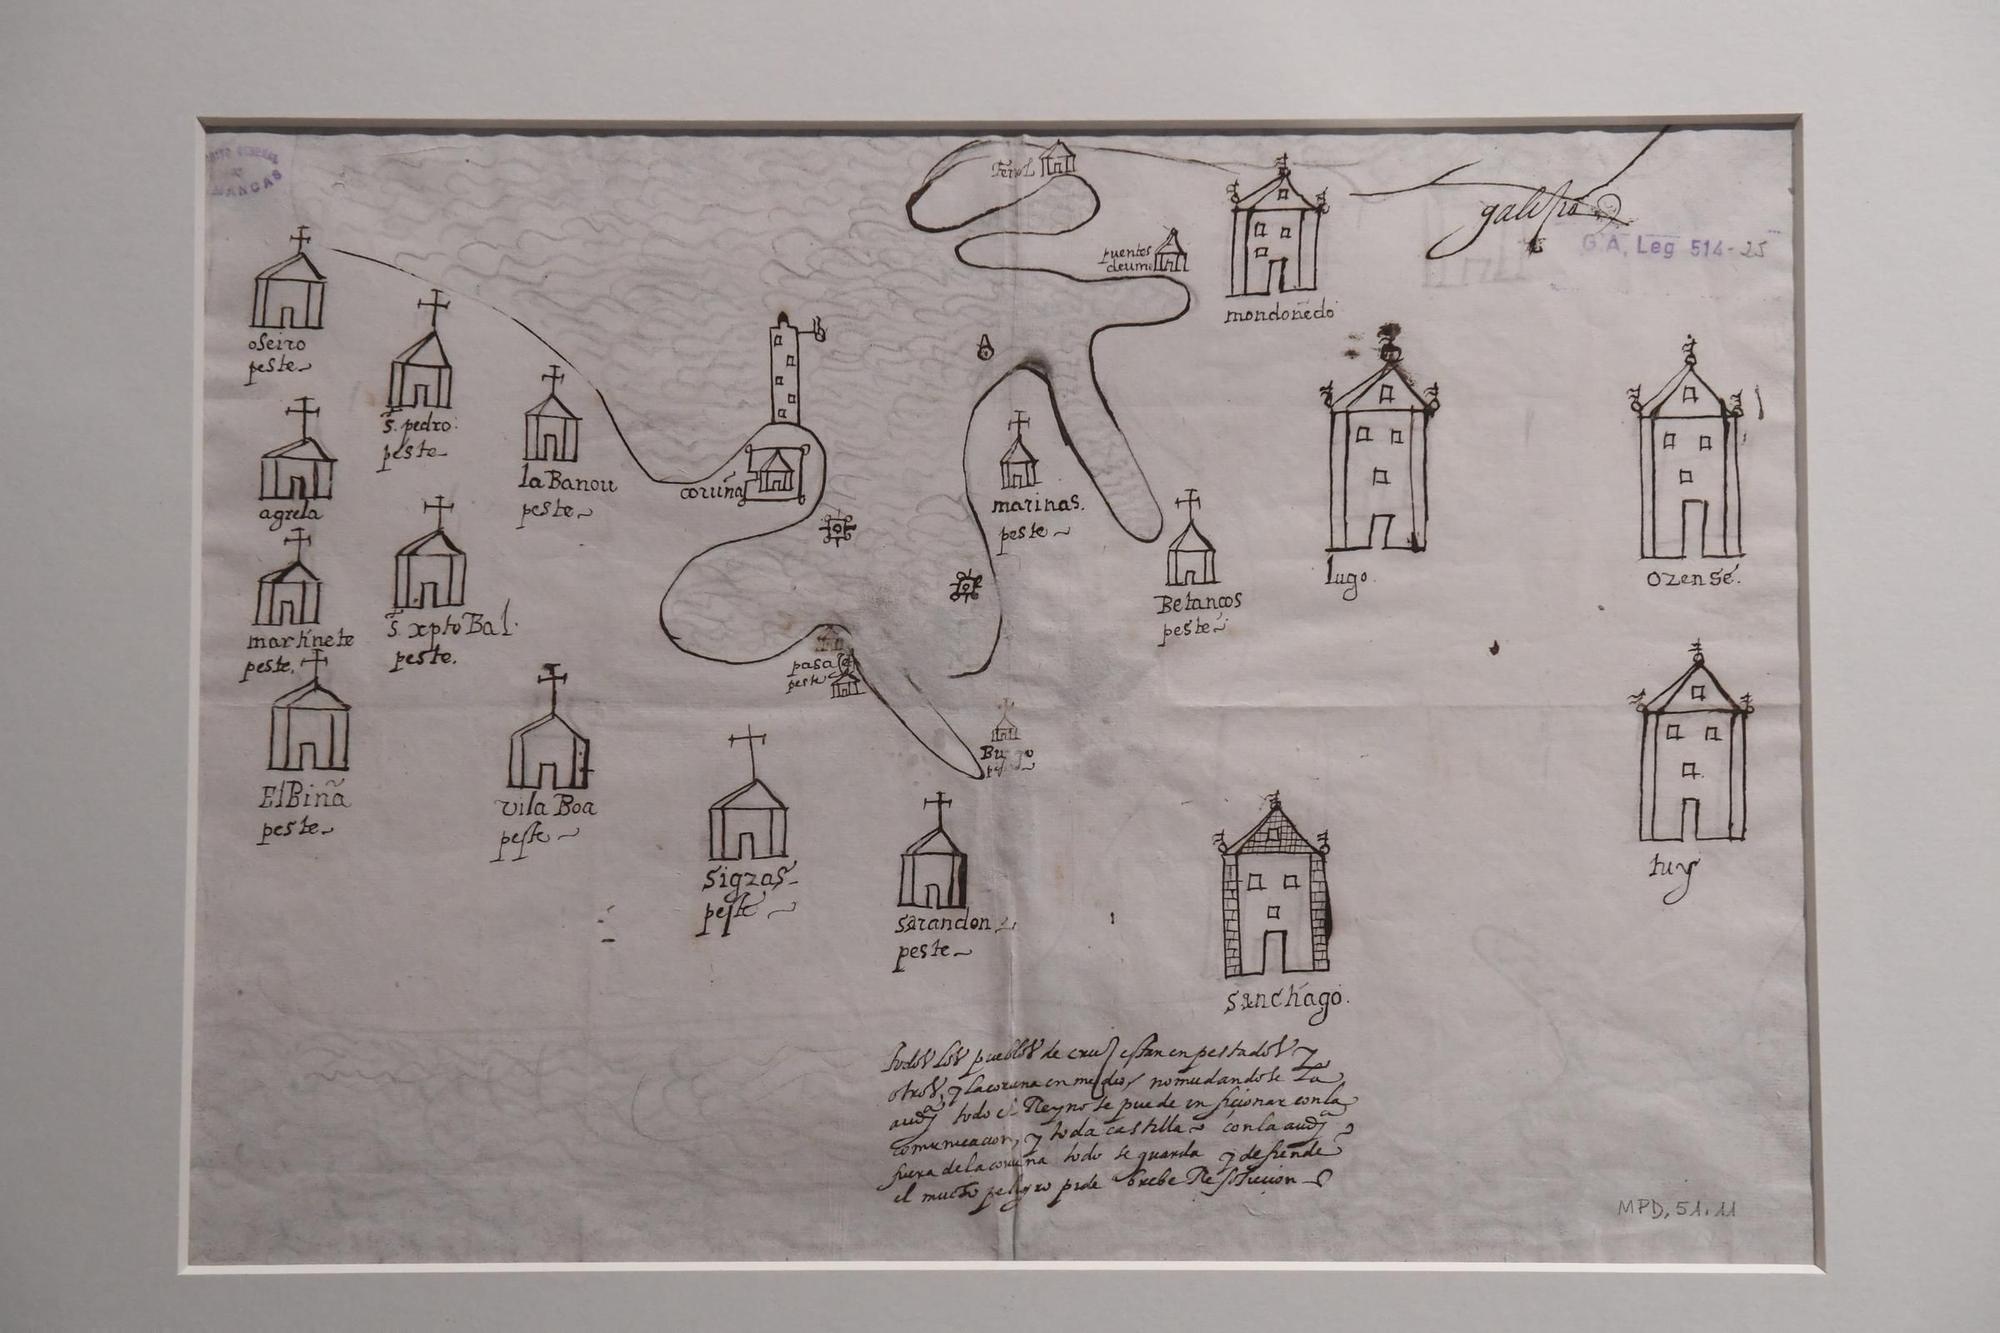 Ferol
puentes
deume
mondoñedo
G.A, Leg 514-25
oseiro
peste
s. pedro
peste
la Banou
peste
coruña
agrela
marinas.
peste
lugo.
ozense.
Betancos
peste
martinete
peste.
s. xptoBal.
peste.
pasaje
peste
Burgo
ElBiña
peste
vila Boa
peste
sigzas
peste
sarandon
peste
tuy
sanchago.
todos los pueblos de cruz estan enpestados y
otros, y la coruna en medio, no mudandose La
audª todo el Reyno se puede inficionar con la
comunicacion, y toda castilla con la audª
fuera de la coruña todo se guarda y defiende
el mucho peligro pide brebe Resolucion
MPD, 51.11